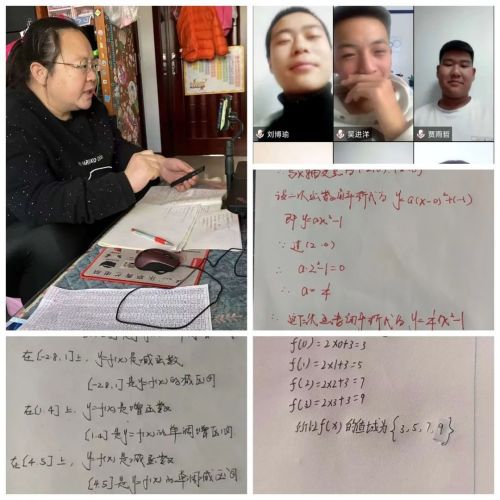 刘博瑜
吴进洋
贾雨哲
设二次函数的解析式为 y=a(x-0)²+(-1)
即 y=ax²-1
∵ 过(2,0)
∴ a·2²-1=0
∴ a=1/4
∴ 这个二次函数的解析式为, y=1/4x²-1
在[-2.8,1]上, y=f(x)是减函数,
[-2.8,1]是y=f(x)的减区间
在[1.4]上, y=f(x)是增函数
[1.4]是y=f(x)的单调增区间.
在[4.5]上, y=f(x)是减函数
[4.5]是y=f(x)的单调减区间
f(0)=2×0+3=3
f(1)=2×1+3=5
f(2)=2×2+3=7
f(3)=2×3+3=9
所以f(x)的值域为{3,5,7,9}